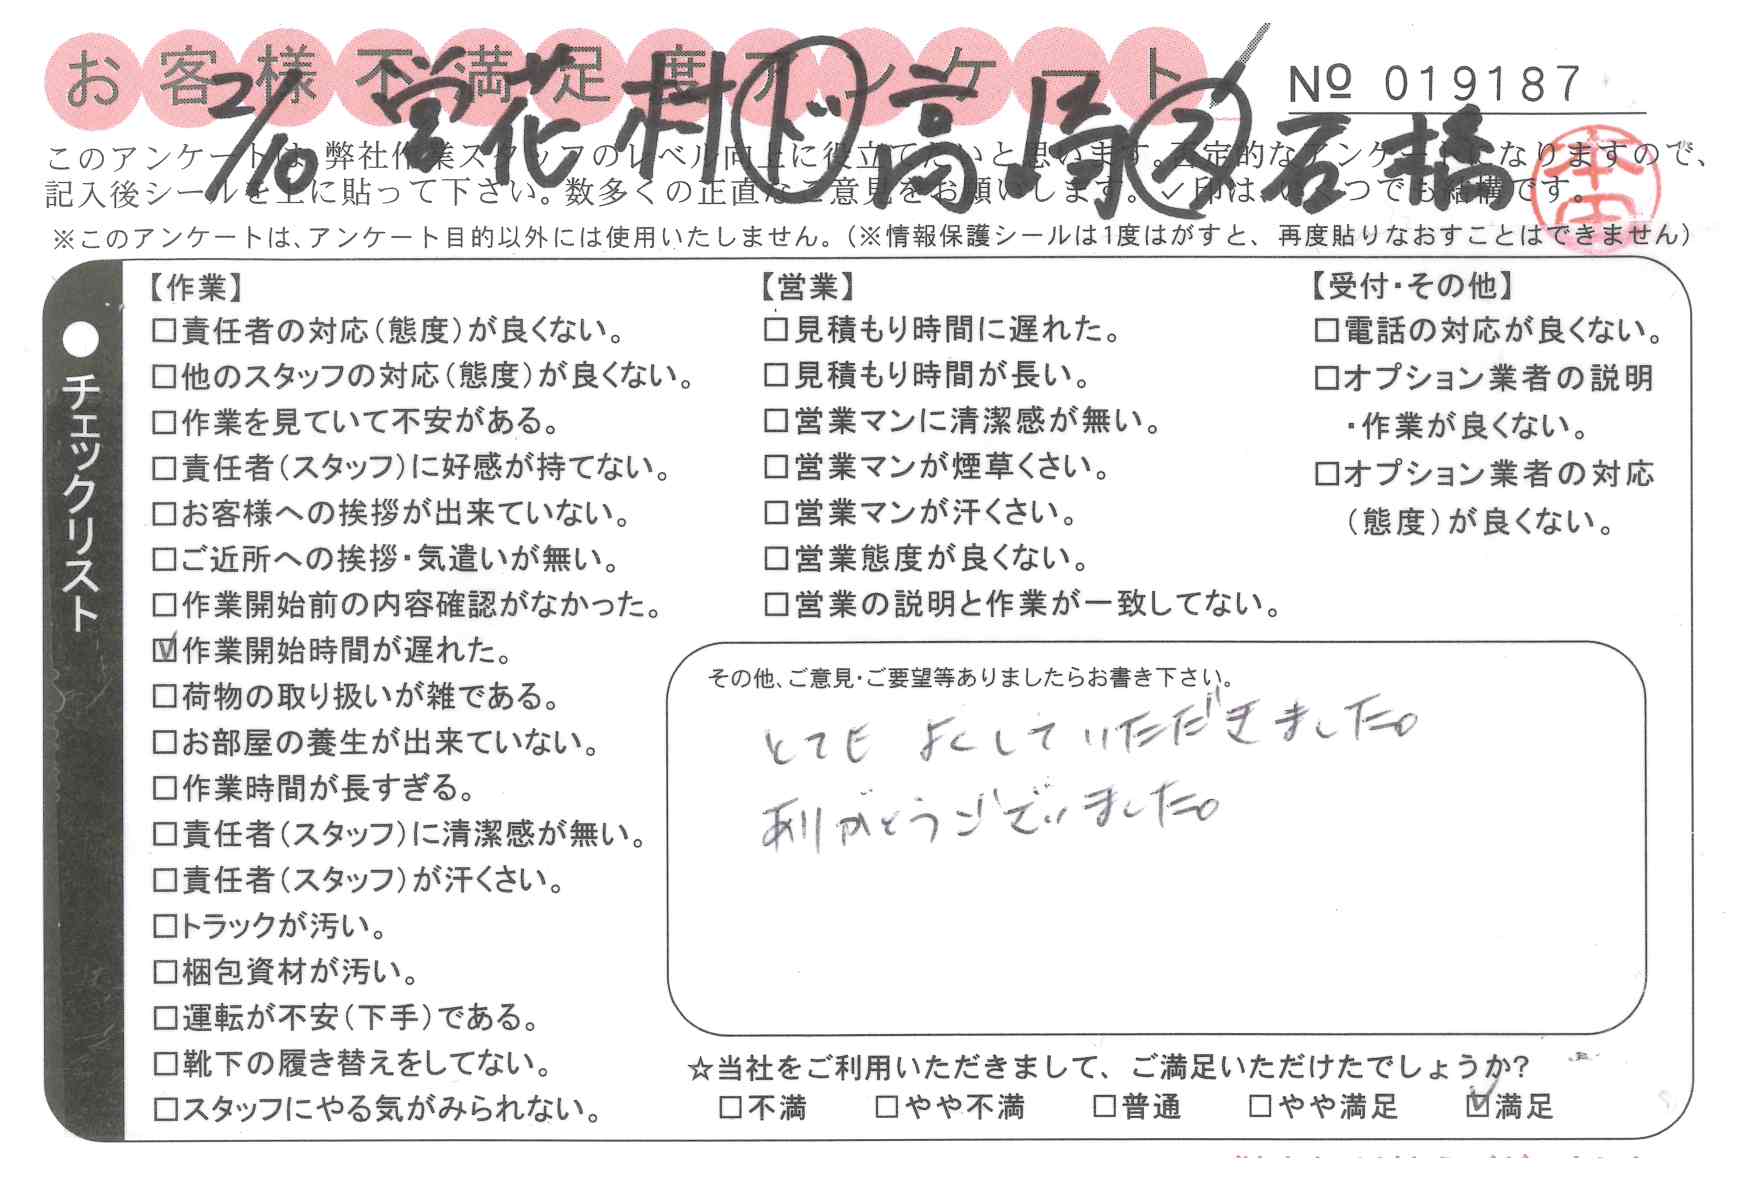 お客様不満足度アンケート
№ 019187
2/10 営 花村 ド 高嶋 ス 石橋
このアンケートは、弊社作業スタッフのレベル向上に役立てたいと思います。否定的なアンケートになりますので、
記入後シールを上に貼って下さい。数多くの正直なご意見をお願いします。✓印は、いくつでも結構です。
※このアンケートは、アンケート目的以外には使用いたしません。(※情報保護シールは1度はがすと、再度貼りなおすことはできません)
●チェックリスト
【作業】
□責任者の対応(態度)が良くない。
□他のスタッフの対応(態度)が良くない。
□作業を見ていて不安がある。
□責任者(スタッフ)に好感が持てない。
□お客様への挨拶が出来ていない。
□ご近所への挨拶・気遣いが無い。
□作業開始前の内容確認がなかった。
☑作業開始時間が遅れた。
□荷物の取り扱いが雑である。
□お部屋の養生が出来ていない。
□作業時間が長すぎる。
□責任者(スタッフ)に清潔感が無い。
□責任者(スタッフ)が汗くさい。
□トラックが汚い。
□梱包資材が汚い。
□運転が不安(下手)である。
□靴下の履き替えをしてない。
□スタッフにやる気がみられない。
【営業】
□見積もり時間に遅れた。
□見積もり時間が長い。
□営業マンに清潔感が無い。
□営業マンが煙草くさい。
□営業マンが汗くさい。
□営業態度が良くない。
□営業の説明と作業が一致してない。
【受付・その他】
□電話の対応が良くない。
□オプション業者の説明
・作業が良くない。
□オプション業者の対応
(態度)が良くない。
その他、ご意見・ご要望等ありましたらお書き下さい。
とても よくしていただきました。
ありがとうございました。
☆当社をご利用いただきまして、ご満足いただけたでしょうか?
□不満 □やや不満 □普通 □やや満足 ☑満足